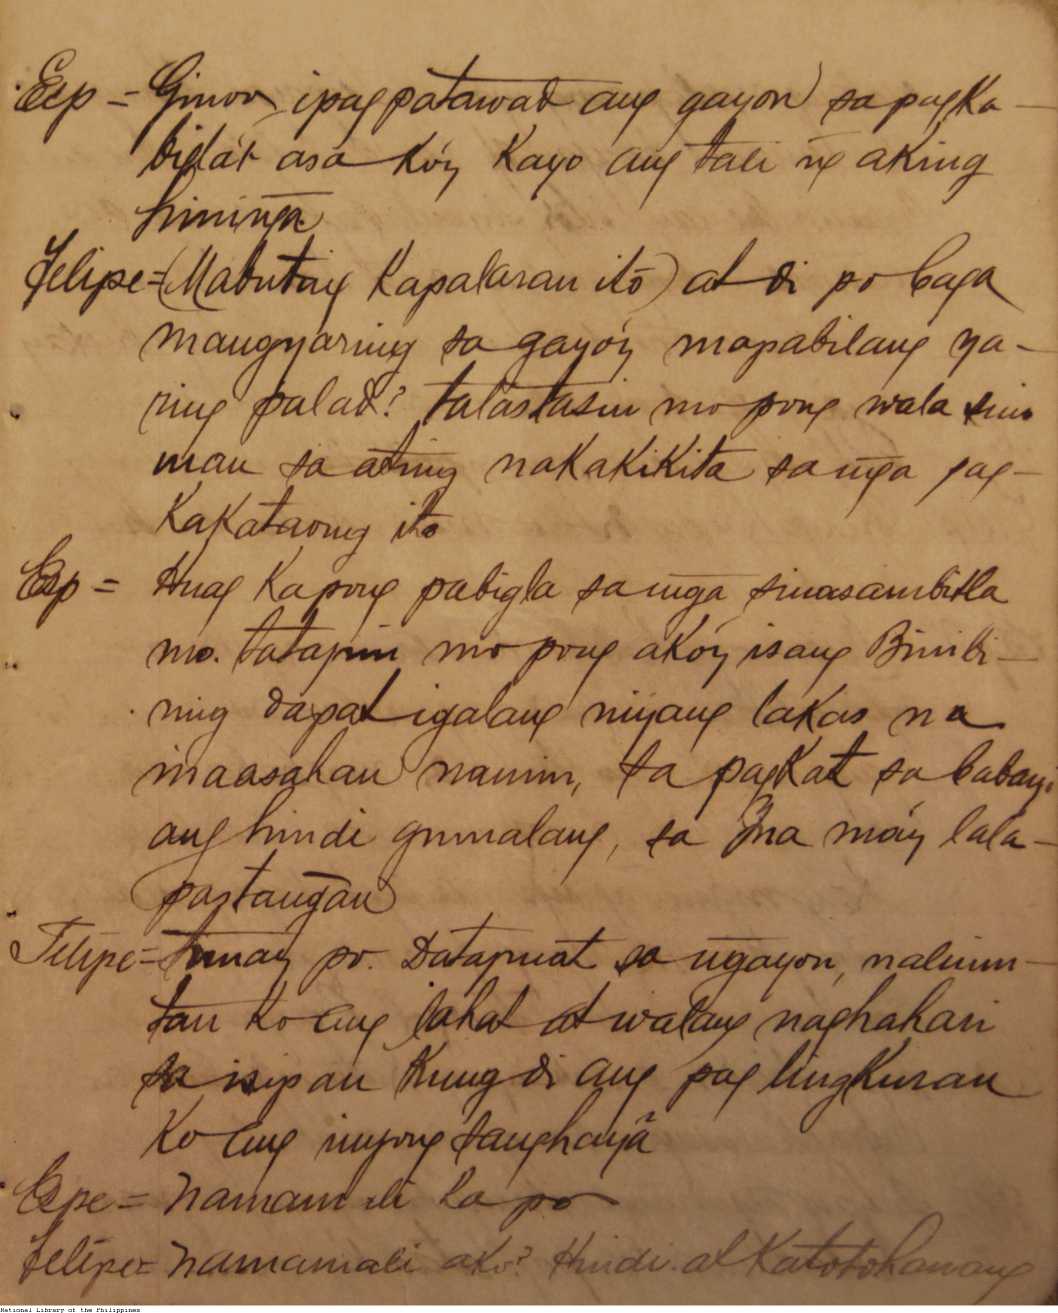 Esp = Ginoo, ipag patawad ang gayon sa pagka-
biglât asa kóy kayo ang tali ng̃ aking
hining̃a.
Felipe = (Mabuting kapalaran itó) at di po baga
mangyaring sa gayóy mapabilang ya-
ring palad? talastasin mo pong wala sino
man sa ating nakakikita sa mg̃a pag-
kakataong ito
Esp = Huag ka pong pabigla sa mg̃a sinasambitla
mo. tatapuin mo pong akóy isang Binibi-
ning dapat igalang niyang lakas na
maasahan namin, sa pagkat sa babayi
ang hindi gumalang, sa Ina máy lala-
pastang̃an
Felipe = tunay po. Datapuat sa ng̃ayon, nalimu-
tan ko ang lahat at walang naghahari
sa isip au kung di ang pag lingkuran
ko ang inyong sanghayâ
Espe = Namamali ka po
Felipe = Namamali ako? Hindi. at katotohanang
National Library of the Philippines